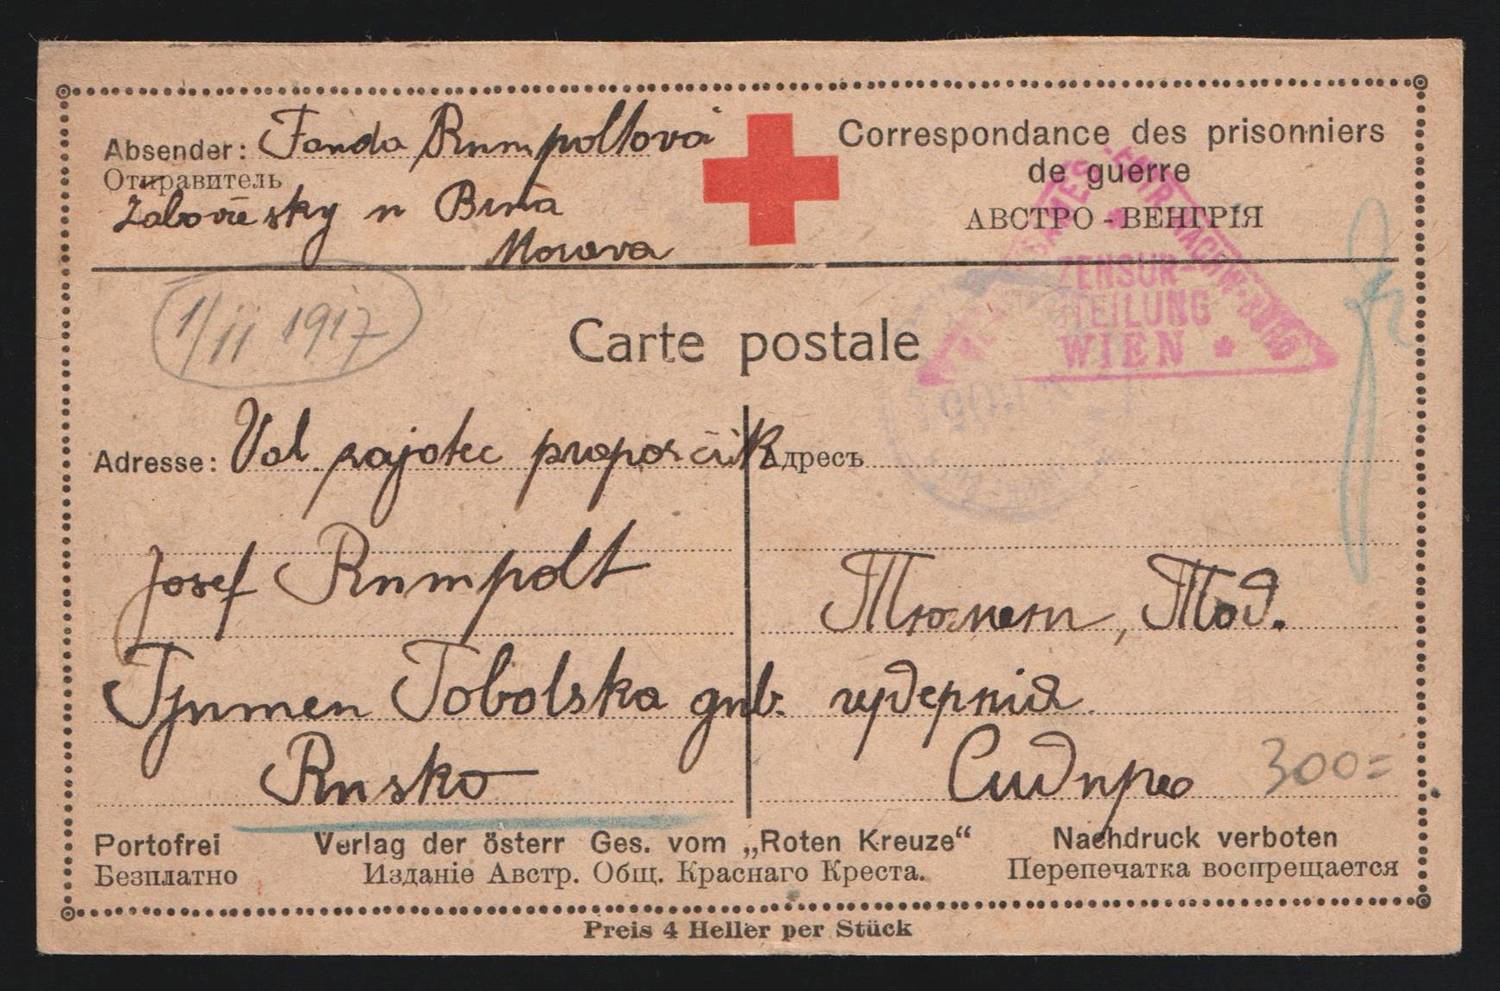 Absender: Fanda Rumpoltová
Отправитель
Žabovřesky u Brna
Morava
Correspondance des prisonniers
de guerre
АВСТРО - ВЕНГРІЯ
ZENSUR-
WIEN
1/II 1917
Carte postale
Adresse: Val zajatec proporčik
Адресъ
Josef Rumpolt
Tjumen Tobolska gub.
Rusko
Тюмень, Тоб.
губернія
300=
Portofrei
Безплатно
Verlag der österr Ges. vom „Roten Kreuze“
Изданіе Австр. Общ. Краснаго Креста.
Nachdruck verboten
Перепечатка воспрещается
Preis 4 Heller per Stück